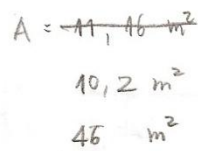 A = 11,16 m²
10,2 m²
46 m²